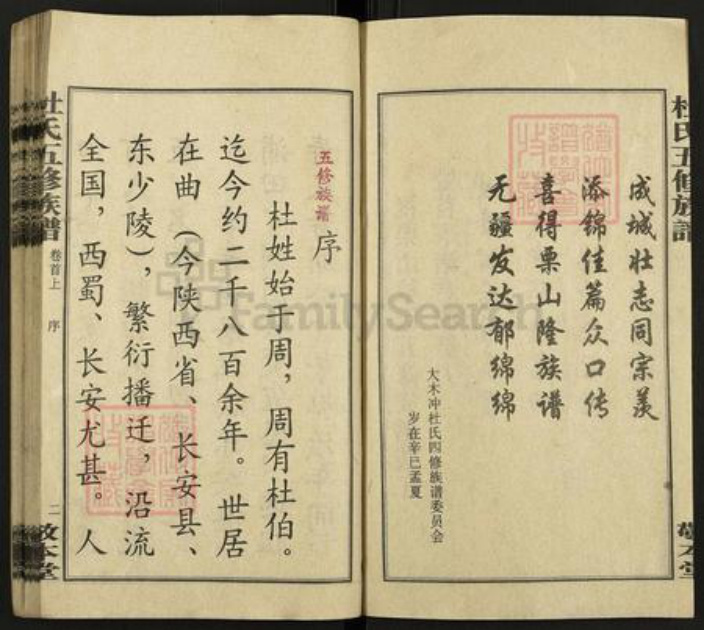 杜氏五修族谱
敬本堂
成城壮志同宗羡
添锦佳篇众口传
喜得栗山隆族谱
无疆发达郁绵绵
大木冲杜氏四修族谱委员会
岁在辛巳孟夏
五修族谱
序
杜姓始于周，周有杜伯。
迄今约二千八百余年。世居
在曲（今陕西省、长安县、
东少陵），繁衍播迁，沿流
全国，西蜀、长安尤甚。人
杜氏五修族谱
卷首上
序
二
敬本堂
FamilySearch